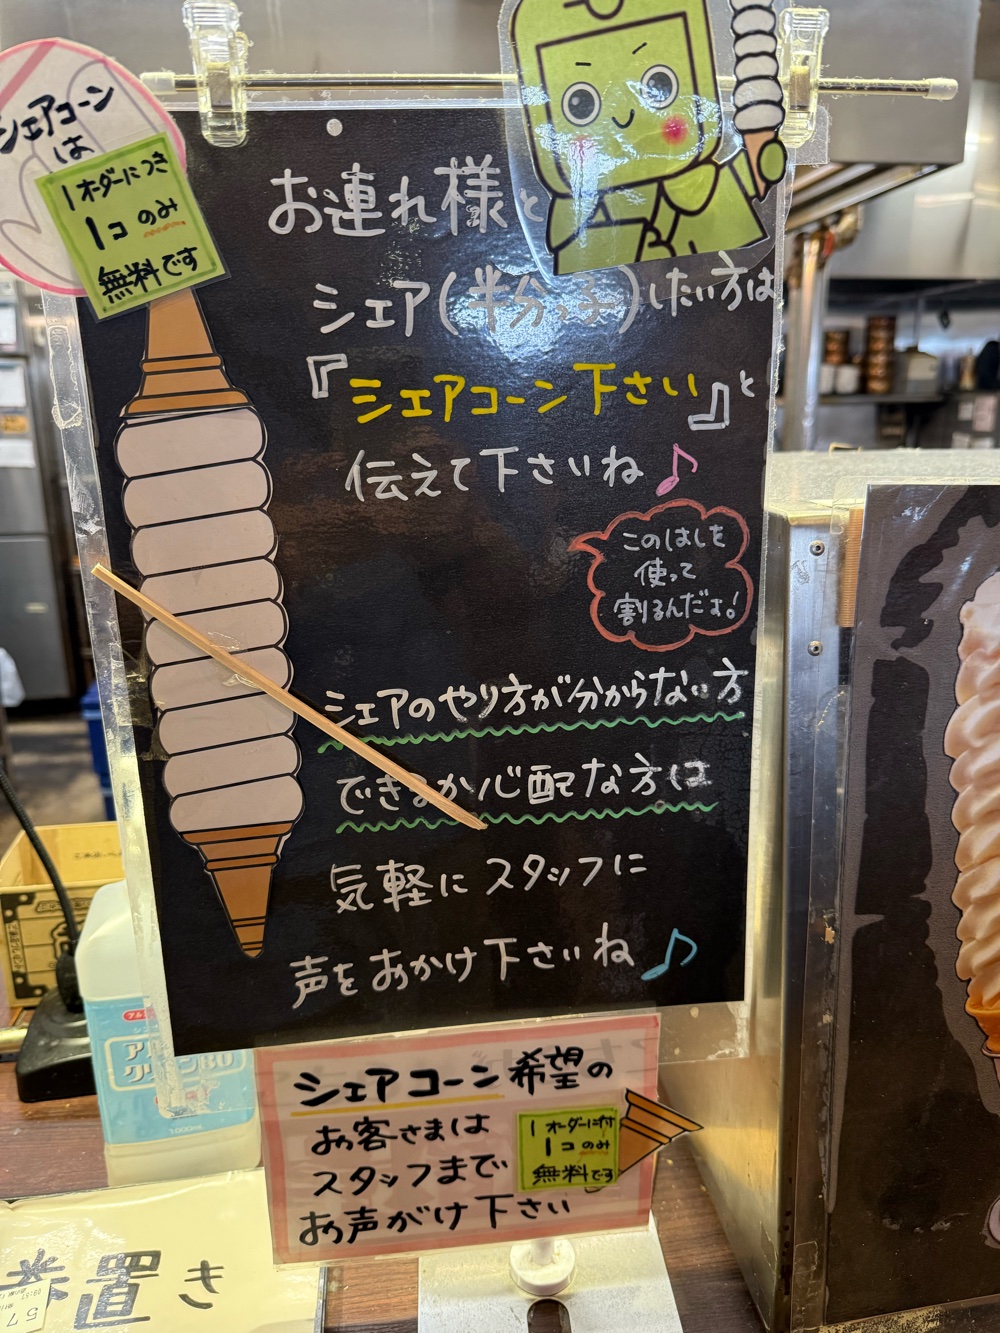 シェアコーン
は
1オーダーにつき
1コのみ
無料です
お連れ様と
シェア(半分っ子)したい方は
『シェアコーン下さい』と
伝えて下さいね♪
このはしを
使って
割るんだよ!
シェアのやり方が分からない方
できるか心配な方は
気軽にスタッフに
声をおかけ下さいね♪
シェアコーン希望の
お客さまは
スタッフまで
お声がけ下さい
1オーダーに付
1コのみ
無料です
置き
57